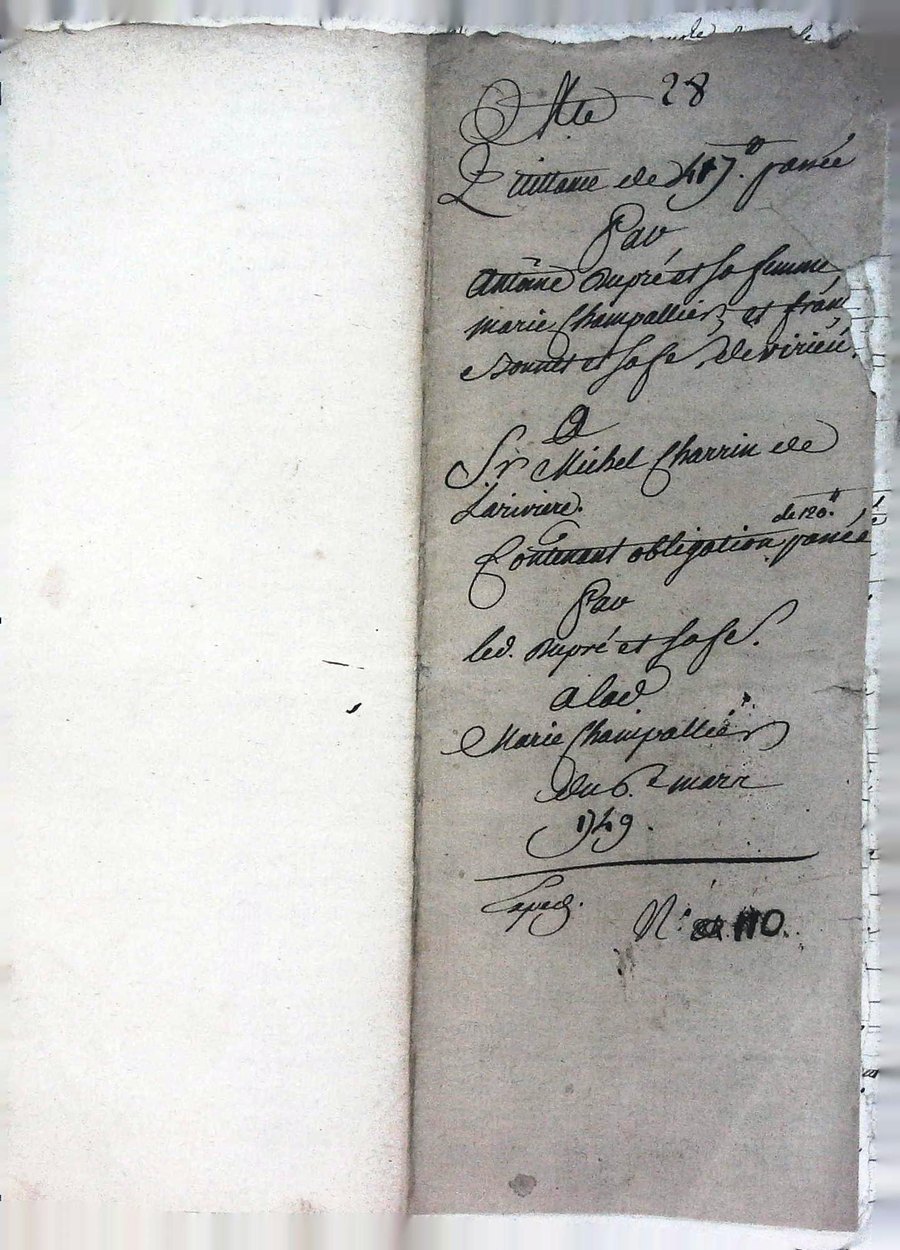 Cotte 28
Quittance de 417.ᵗᵗ passée
Par
Antoine Dupré et sa femme
marie Champallier, et fran
Bonnet et sa fe de virieu.
A
Sr Michel Charrin de
Lariviere.
Contenant obligation de 120.ᵗᵗ passée
Par
led. Dupré et sa fe.
a lad.
Marie Champallier
du 6.e mars
1749.
N.° 110.